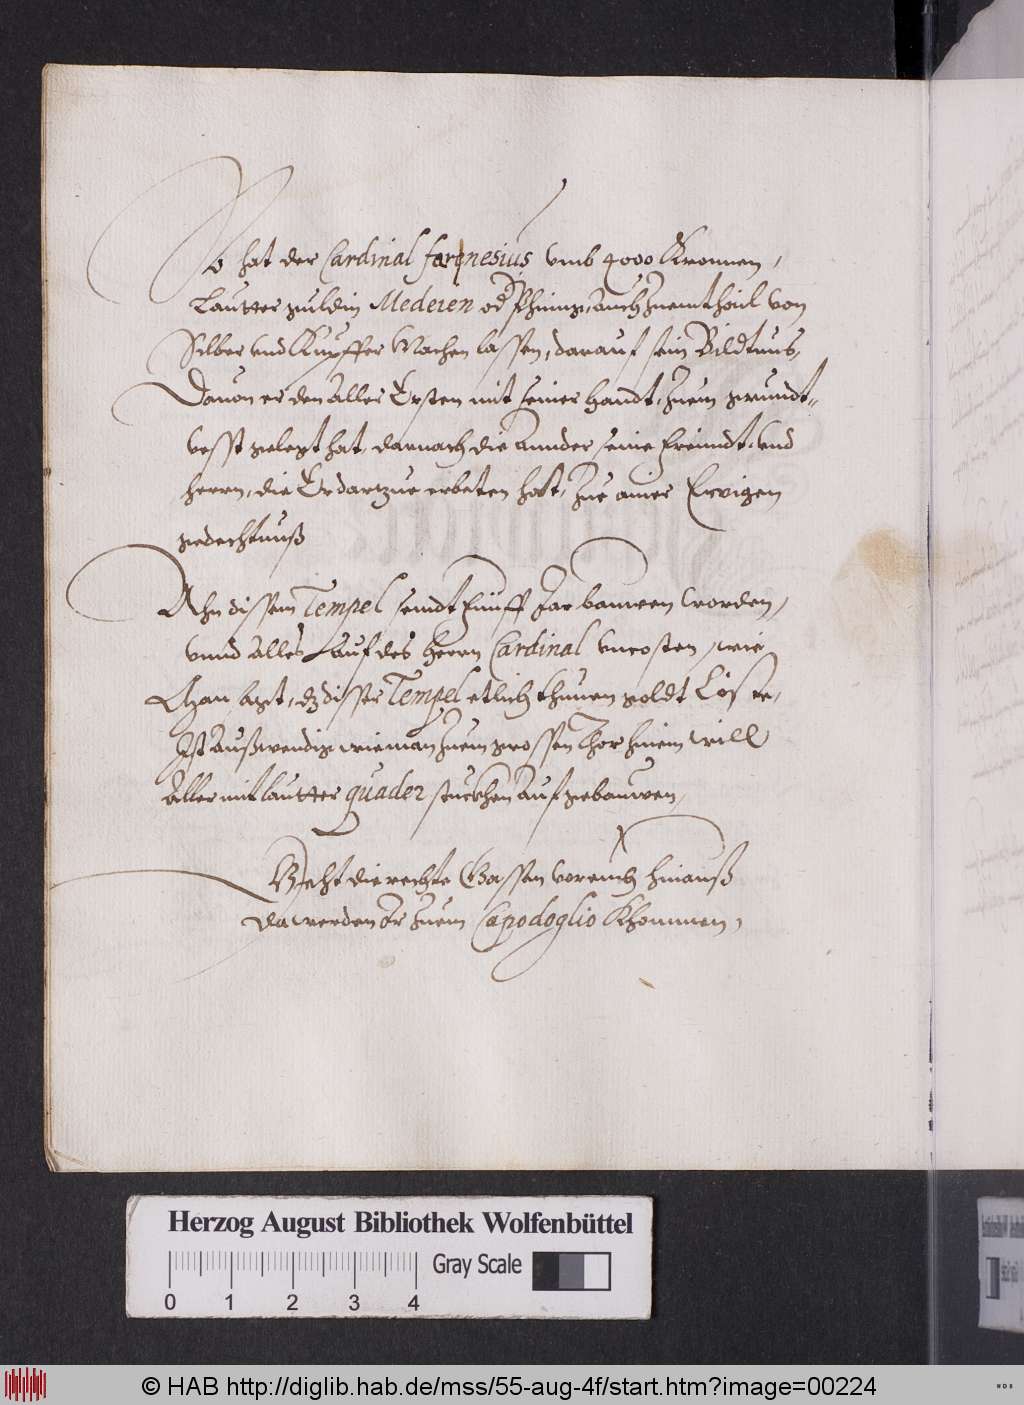 So hat der Cardinal farnesius vmb 4000 Kronnen,
Lautter guldin Medeien od schimpf, auch zuem theil von
Silber vnd Kupffer Machen lassen, darauf sein Bildtnus,
Dauon er den Aller Ersten mit seiner handt, zuem grundt=
vesst gelegt hat, darnach die Annder seine freundt, vnd
herrn, die Er dartzue erbeten hat, zue ainer Ewigen
gedechtnuß
Ahn dissem Tempel sendt fünff Jar bauwen worden,
vnnd alles auf des herrn Cardinal vncosten, wie
Man sagt, dz disser Tempel etlich thunen goldt Coste,
Ist Außwendig wie man zuem grossen Thor hinein will
Aller mit lautter quader stuckhen Auf gebauwen,
Geht die rechte Gassen vor euch hinauß
Da werden Ir zuem Capodoglio Khommen,
Herzog August Bibliothek Wolfenbüttel
Gray Scale
0 1 2 3 4
© HAB http://diglib.hab.de/mss/55-aug-4f/start.htm?image=00224